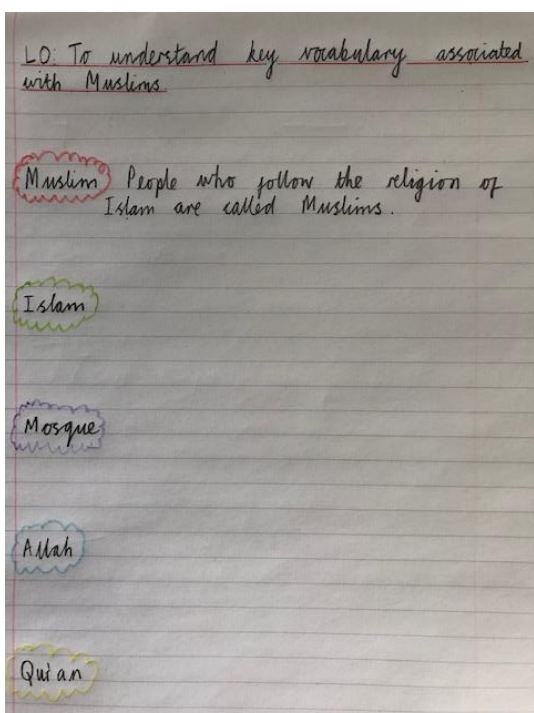 LO: To understand key vocabulary associated
with Muslims
Muslim People who follow the religion of
Islam are called Muslims.
Islam
Mosque
Allah
Qur'an